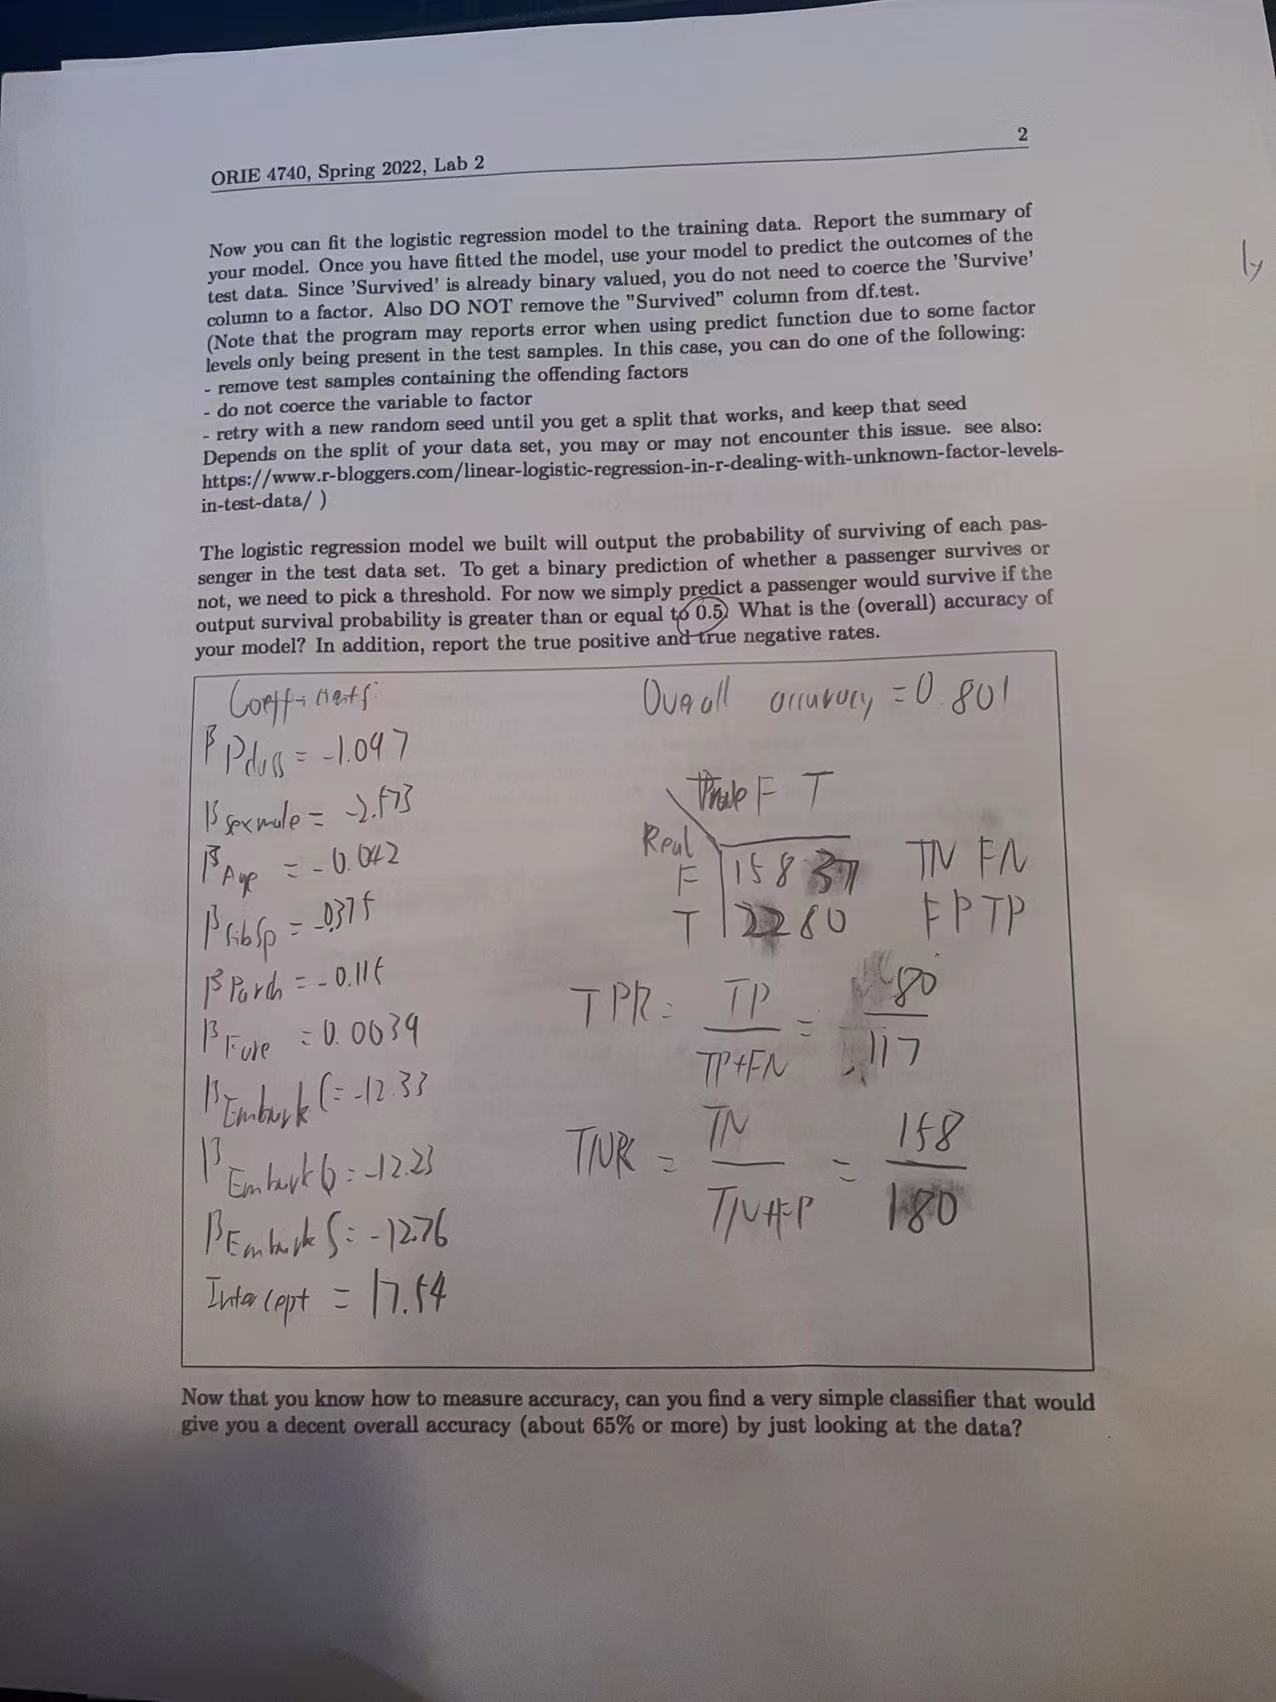 2
ORIE 4740, Spring 2022, Lab 2
Now you can fit the logistic regression model to the training data. Report the summary of
your model. Once you have fitted the model, use your model to predict the outcomes of the
test data. Since 'Survived' is already binary valued, you do not need to coerce the 'Survive'
column to a factor. Also DO NOT remove the "Survived" column from df.test.
(Note that the program may reports error when using predict function due to some factor
levels only being present in the test samples. In this case, you can do one of the following:
- remove test samples containing the offending factors
- do not coerce the variable to factor
- retry with a new random seed until you get a split that works, and keep that seed
Depends on the split of your data set, you may or may not encounter this issue. see also:
https://www.r-bloggers.com/linear-logistic-regression-in-r-dealing-with-unknown-factor-levels-
in-test-data/ )
The logistic regression model we built will output the probability of surviving of each pas-
senger in the test data set. To get a binary prediction of whether a passenger survives or
not, we need to pick a threshold. For now we simply predict a passenger would survive if the
output survival probability is greater than or equal to 0.5. What is the (overall) accuracy of
your model? In addition, report the true positive and true negative rates.
Coefficients:
β Pclass = -1.097
β sexmale = -2.573
β Age = -0.042
β SibSp = -0.375
β Parch = -0.115
β Fare = 0.0039
β Embark C = -12.33
β Embark Q = -12.23
β Embark S = -12.76
Intercept = 17.54
Overall accuracy = 0.801
F T
Real
F 158 37 TN FN
T 22 80 FP TP
TPR = TP / TP+FN = 80 / 117
TNR = TN / TN+FP = 158 / 180
Now that you know how to measure accuracy, can you find a very simple classifier that would
give you a decent overall accuracy (about 65% or more) by just looking at the data?